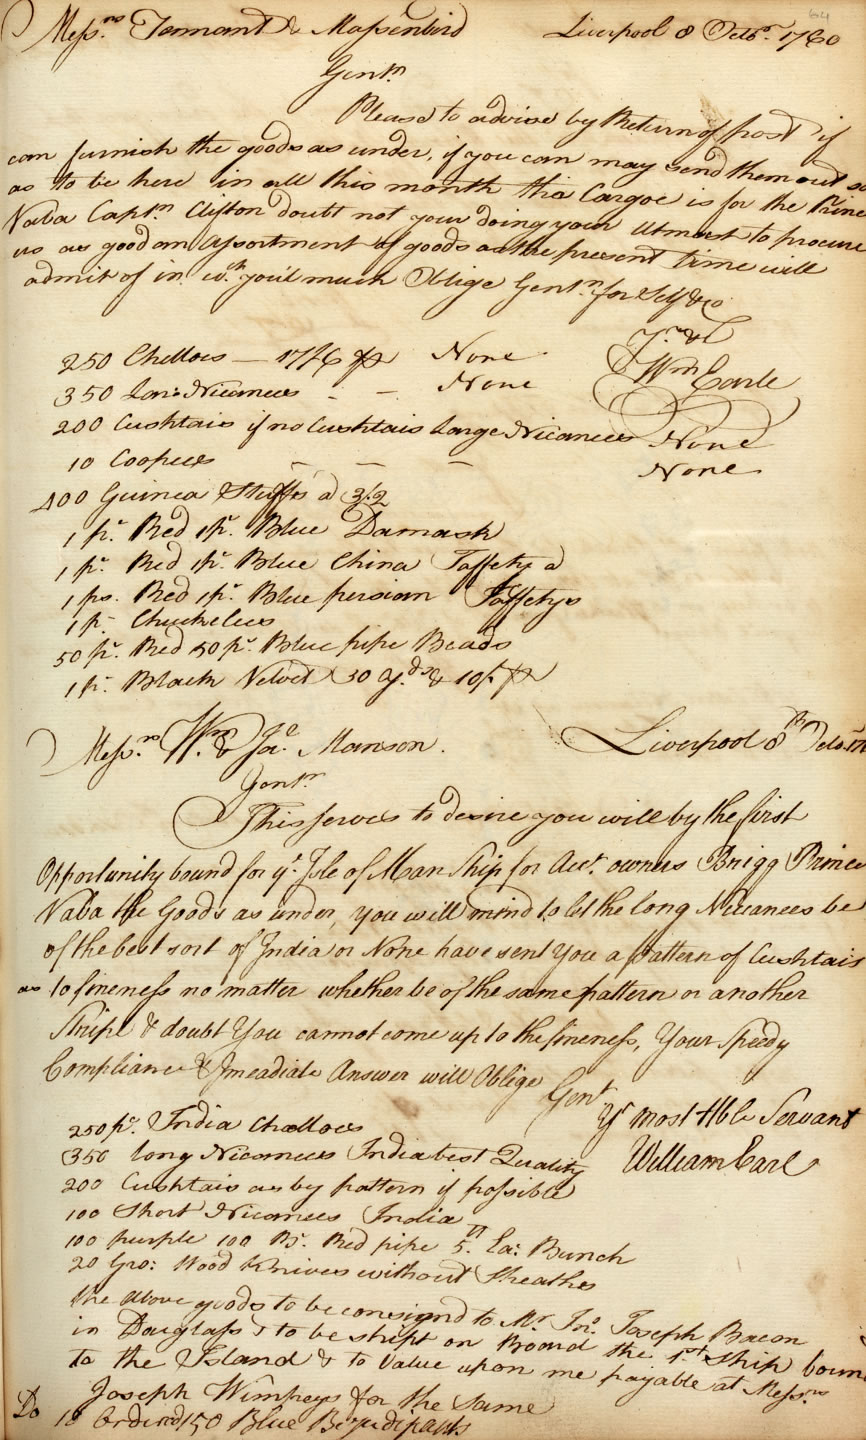 Messrs Tennant & Massenbird Liverpool 8 Octor 1760
Gentn
Please to advise by Return of post if
can furnish the goods as under, if you can may send them out so
as to be here in all this month this Cargoe is for the Prince
Vaba Captn Clifton doubt not your doing your Utmost to procure
us as good an Assortment of goods as the present time will
admit of in wch. you'll much Oblige Gentn. for Self & Co
250 Chelloes — 17/6 pp None Yr &c
350 Lon: Nicanees - - None Wm Earle
200 Cushtais if no Cushtais Large Nicanees None
10 Coopees — — — None
400 Guinea Stuffs a 3/2
1 pr. Red 1 pr. Blue Damask
1 pr. Red 1 pr. Blue China Taffety a
1 ps. Red 1 pr. Blue persian Taffetys
1 p Chuckelees
50 pr. Red 50 pr. Blue pipe Beads
1 pr. Black Velvet 30 Yds & 10/
Messrs Wm & Jas. Manson. Liverpool 8th Octo. 17
Gentn
This serves to desire you will by the first
Opportunity bound for ye. Isle of Man Ship for Acct. owners Brigg Prince
Vaba the Goods as under, you will mind to let the long Nicanees be
of the best sort of India or None have sent You a pattern of Cushtais
as to fineness no matter whether be of the same pattern or another
Stripe & doubt You cannot come up to the fineness, Your Speedy
Compliance & Imeadiate Answer will Oblige Gent
250 pr. India Chelloes Yr most Hble Servant
350 long Nicanees India best Quality William Earle
200 Cushtais as by pattern if possible
100 Short Nicanees India
100 purple 100 Bs. Red pipe 5. Ea: Bunch
20 Gro: Wood Knives without Sheathes
the above goods to be consignd to Mr Jno. Joseph Bacon
in Douglass & to be shipt on Board the 1st Ship boun
to the Island & to Value upon me payable at Messrs
Joseph Wimpeys for the same
Do 10 Ordered 150 Blue